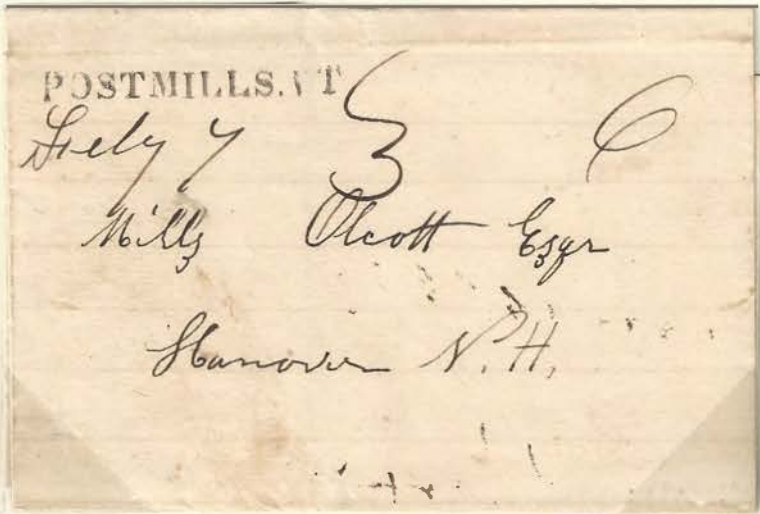 POSTMILLS.VT
July 7 6
Mills Olcott Esqr
Hanover N.H.